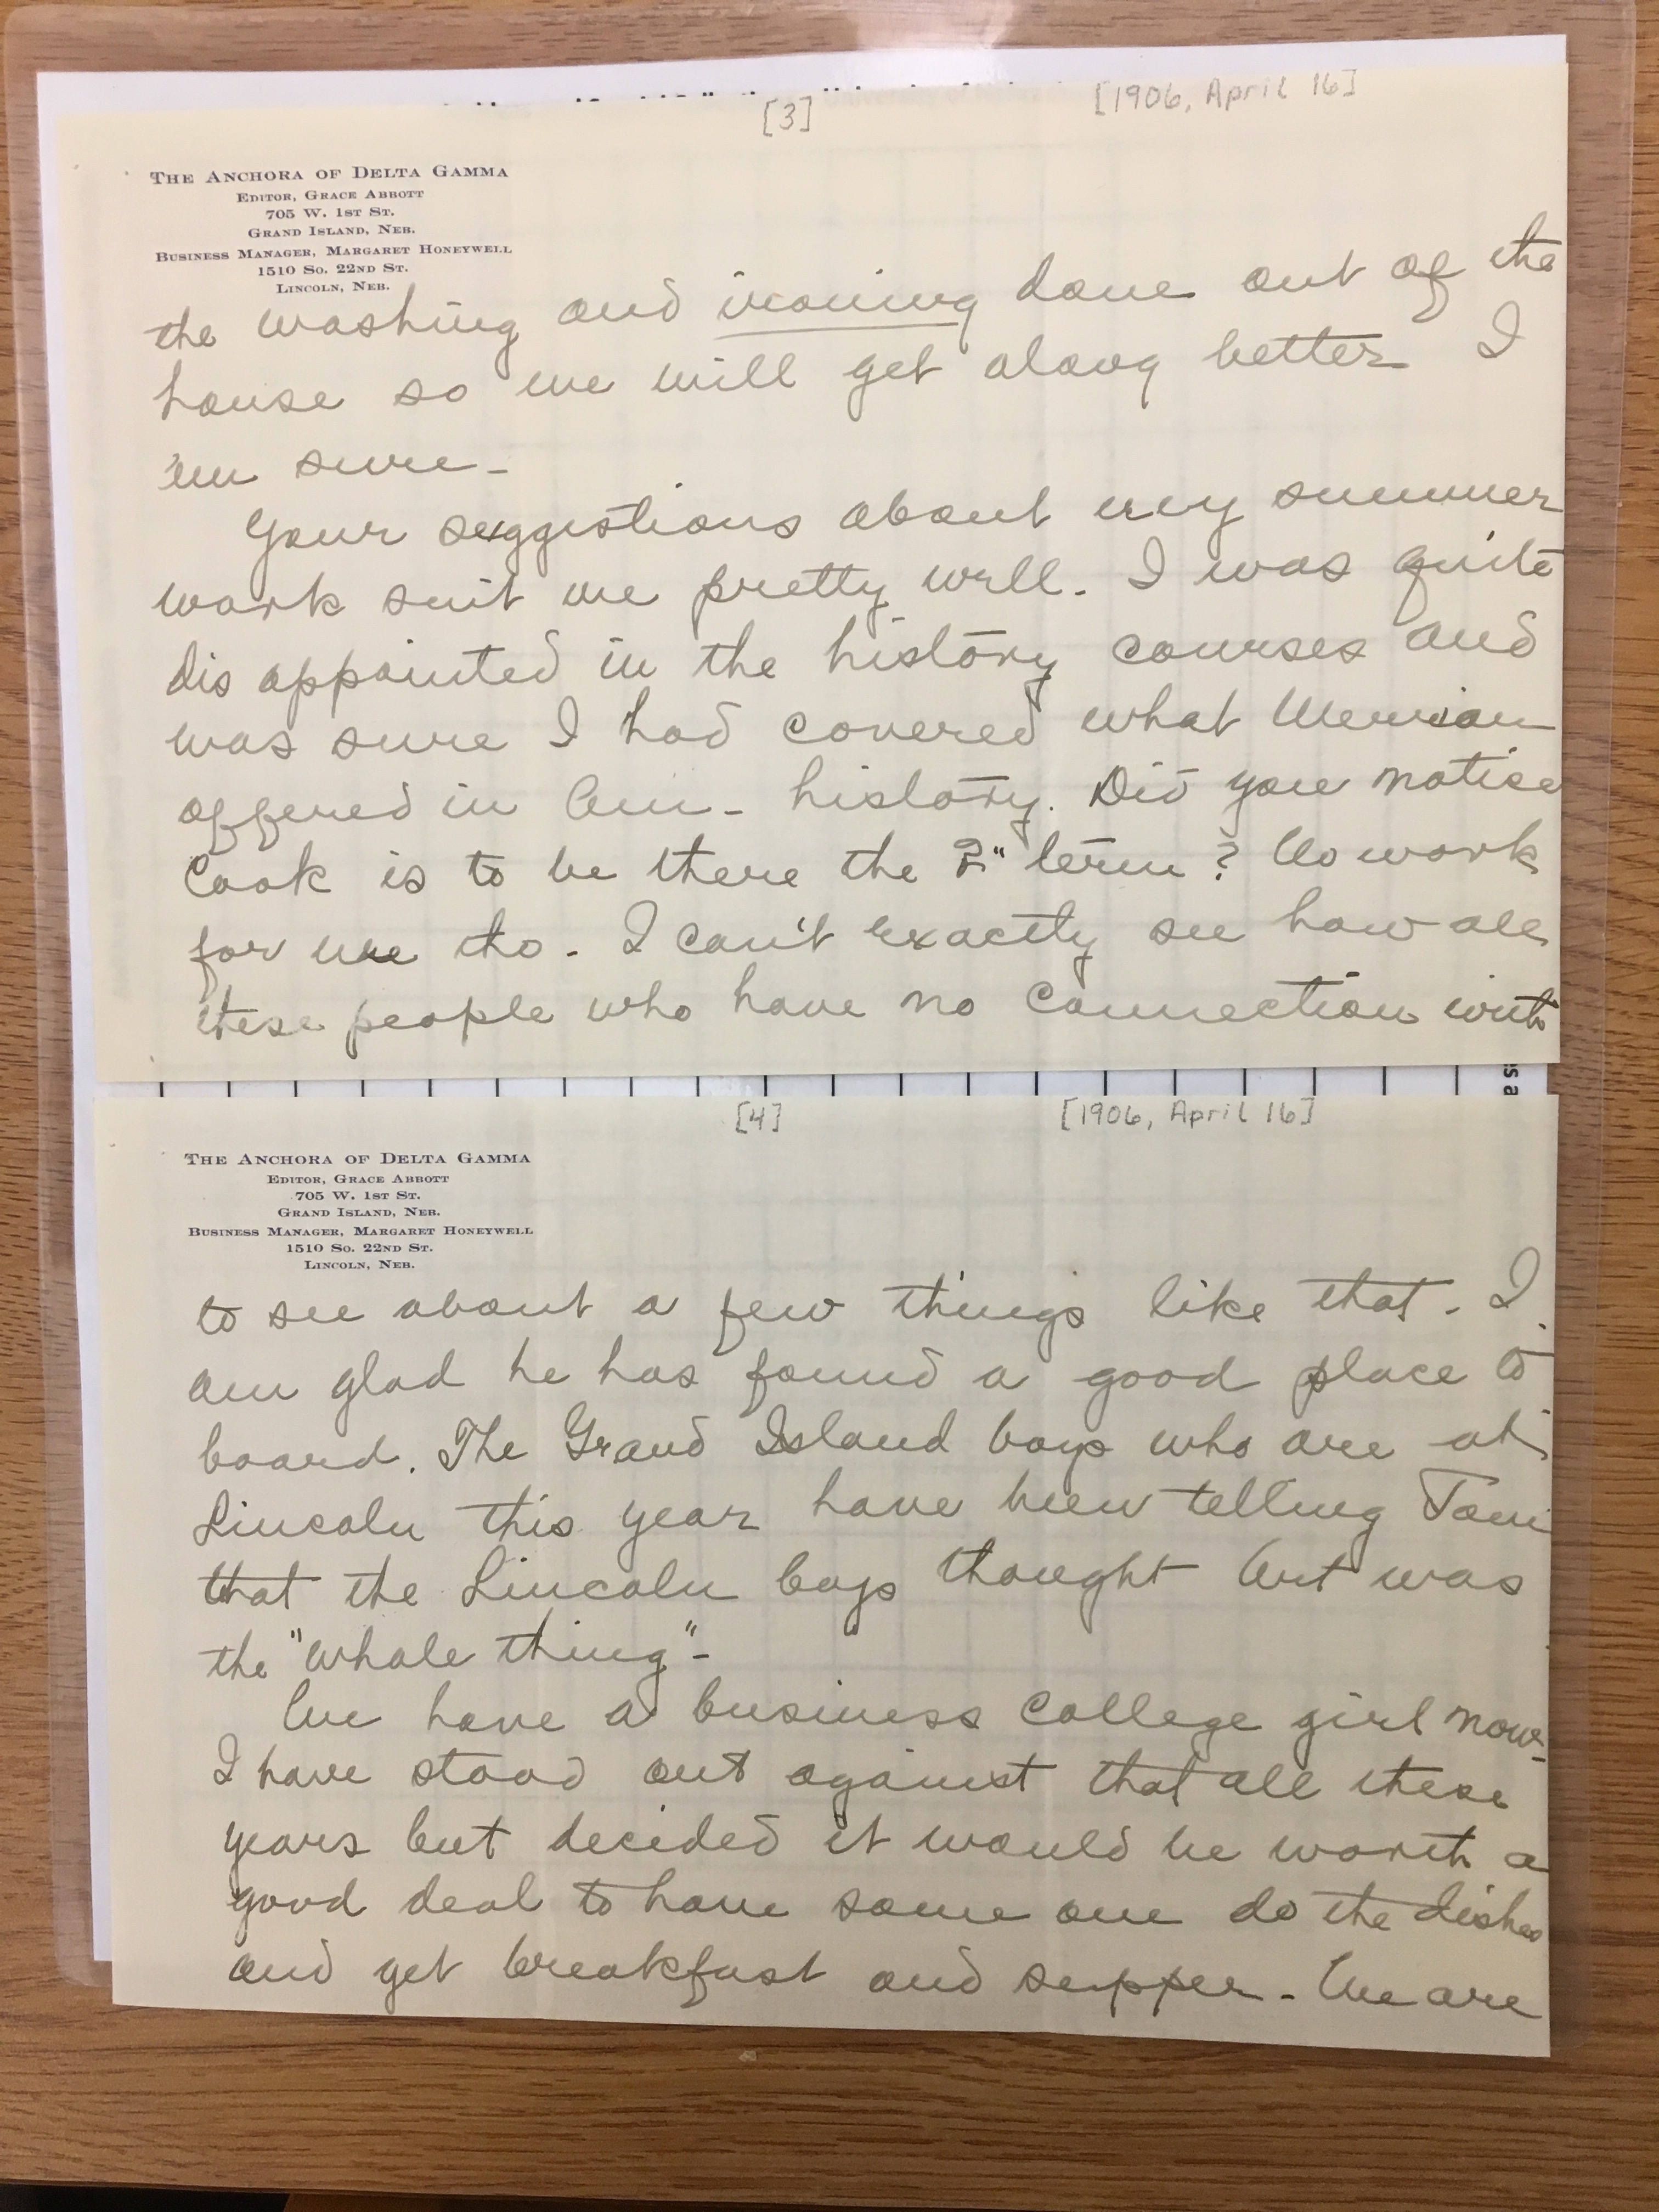 [3]
[1906, April 16]
THE ANCHORA OF DELTA GAMMA
EDITOR, GRACE ABBOTT
705 W. 1ST ST.
GRAND ISLAND, NEB.
BUSINESS MANAGER, MARGARET HONEYWELL
1510 SO. 22ND ST.
LINCOLN, NEB.
the washing and ironing done out of the
house so we will get along better I
'm sure -
Your suggestions about my summer
work suit me pretty well. I was quite
dis appointed in the history courses and
was sure I had covered what
offered in Am - history. Did you notice
Cook is to be there the 2" term? No work
for me tho - I can't exactly see how all
these people who have no connection with
s a
[4]
[1906, April 16]
THE ANCHORA OF DELTA GAMMA
EDITOR, GRACE ABBOTT
705 W. 1ST ST.
GRAND ISLAND, NEB.
BUSINESS MANAGER, MARGARET HONEYWELL
1510 SO. 22ND ST.
LINCOLN, NEB.
to see about a few things like that - I
am glad he has found a good place to
board. The Grand Island boys who are at
Lincoln this year have been telling Tom
that the Lincoln boys thought Art was
the "whole thing" -
We have a business college girl now -
I have stood out against that all these
years but decided it would be worth a
good deal to have some one do the dishes
and get breakfast and supper - We are